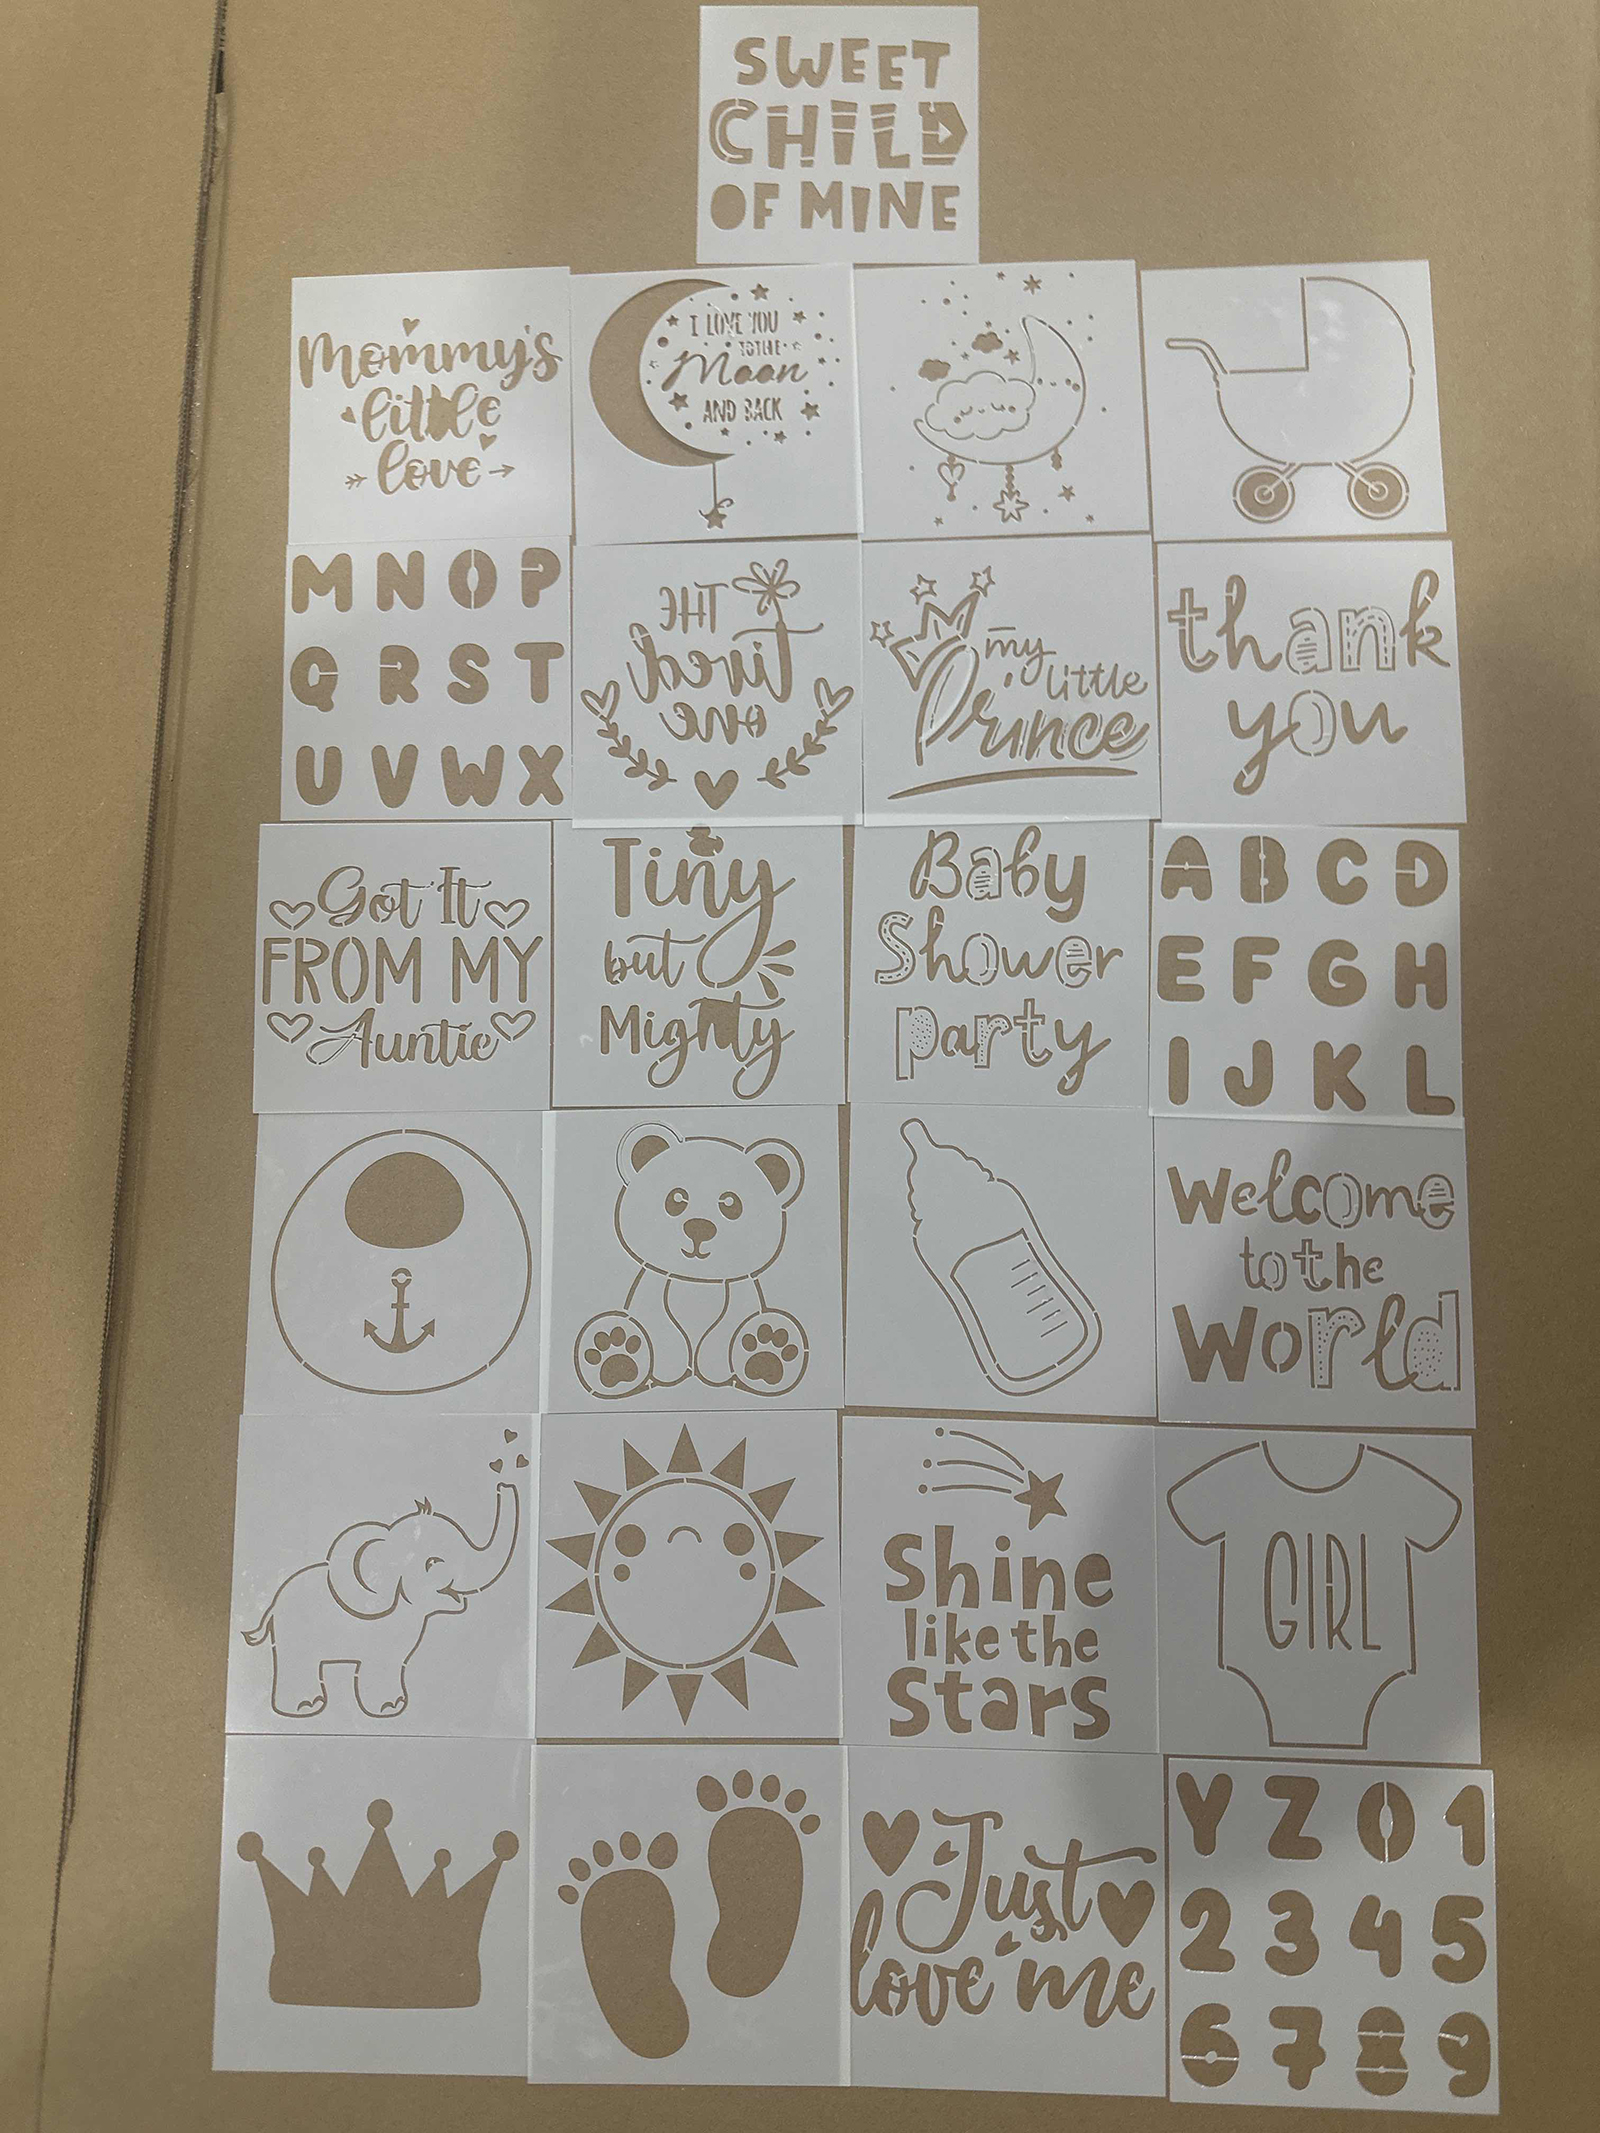 SWEET
CHILD
OF MINE
Mommy's
little
love
I LOVE YOU
TO THE
Moon
AND BACK
M N O P
Q R S T
U V W X
THE
Tired
one
my
little
Prince
thank
you
Got It
FROM MY
Auntie
Tiny
but
Mighty
Baby
Shower
party
A B C D
E F G H
I J K L
Welcome
to the
World
Shine
like the
Stars
GIRL
Just
love me
Y Z 0 1
2 3 4 5
6 7 8 9